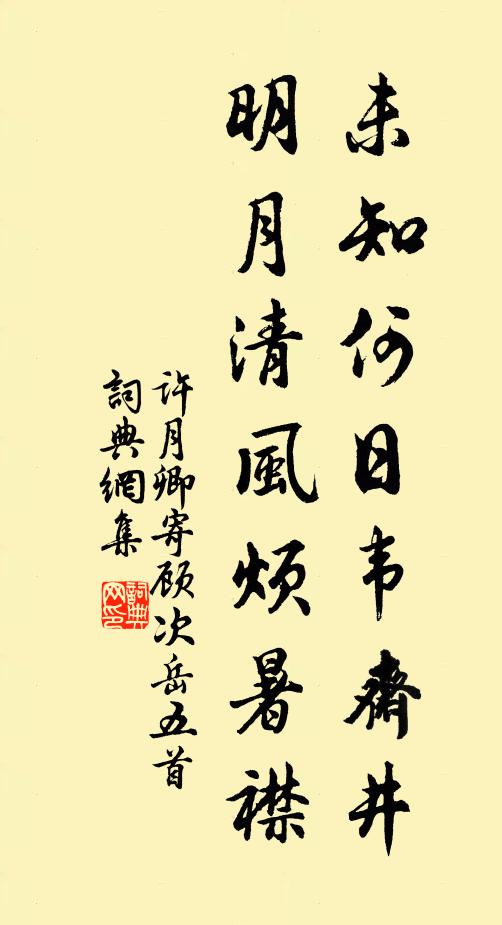 未知何日韦齋井
明月清風煩暑襟
許月卿寄顾次岳五首
詞典網集
詞典网印